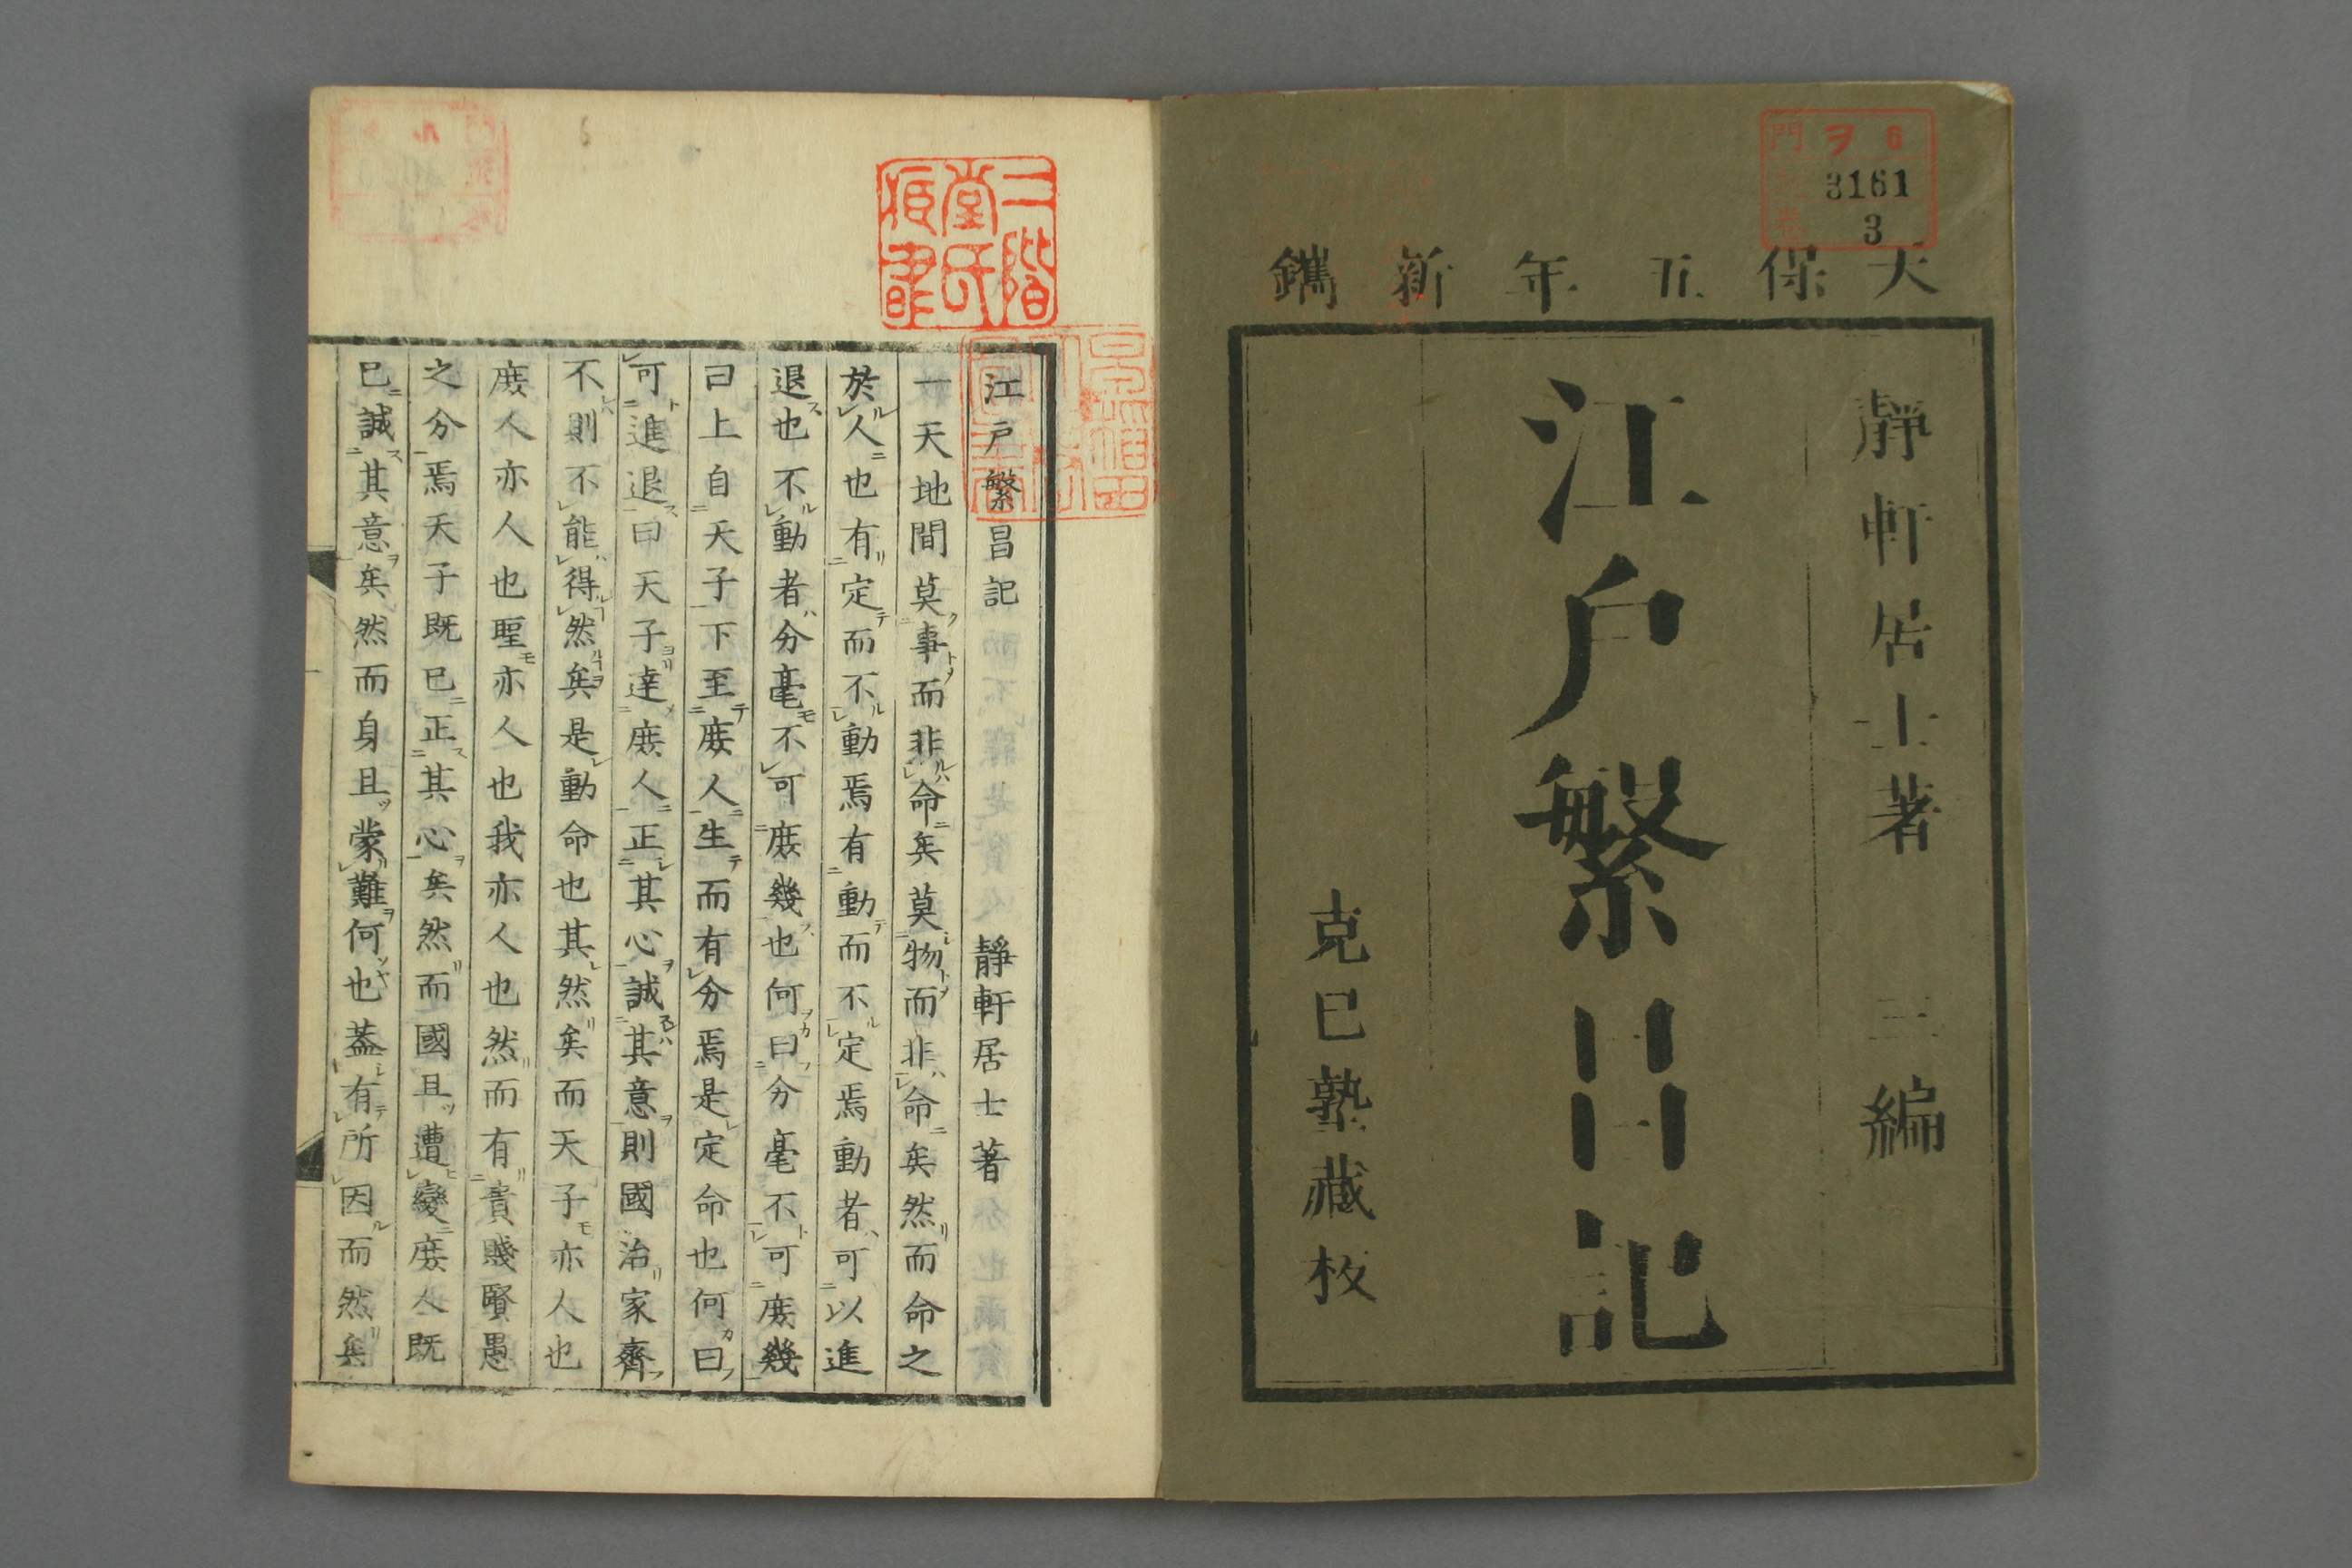 門 ヲ 6
3161
3
天保五年新鐫
靜軒居士著 三編
江戶繁昌記
克己塾藏板
江戶繁昌記 靜軒居士著
一天地間莫事而非命矣莫物而非命矣然而命之
於人也有定而不動焉有動而不定焉動者可以進
退也不動者分毫不可庶幾也何曰分毫不可庶幾
曰上自天子下至庶人生而有分焉是定命也何曰
可進退曰天子達庶人正其心誠其意則國治家齊
不則不能得然矣是動命也其然矣而天子亦人也
庶人亦人也聖亦人也我亦人也然而有貴賤賢愚
之分焉天子既已正其心矣然而國且遭變庶人既
已誠其意矣然而身且蒙難何也蓋有所因而然矣